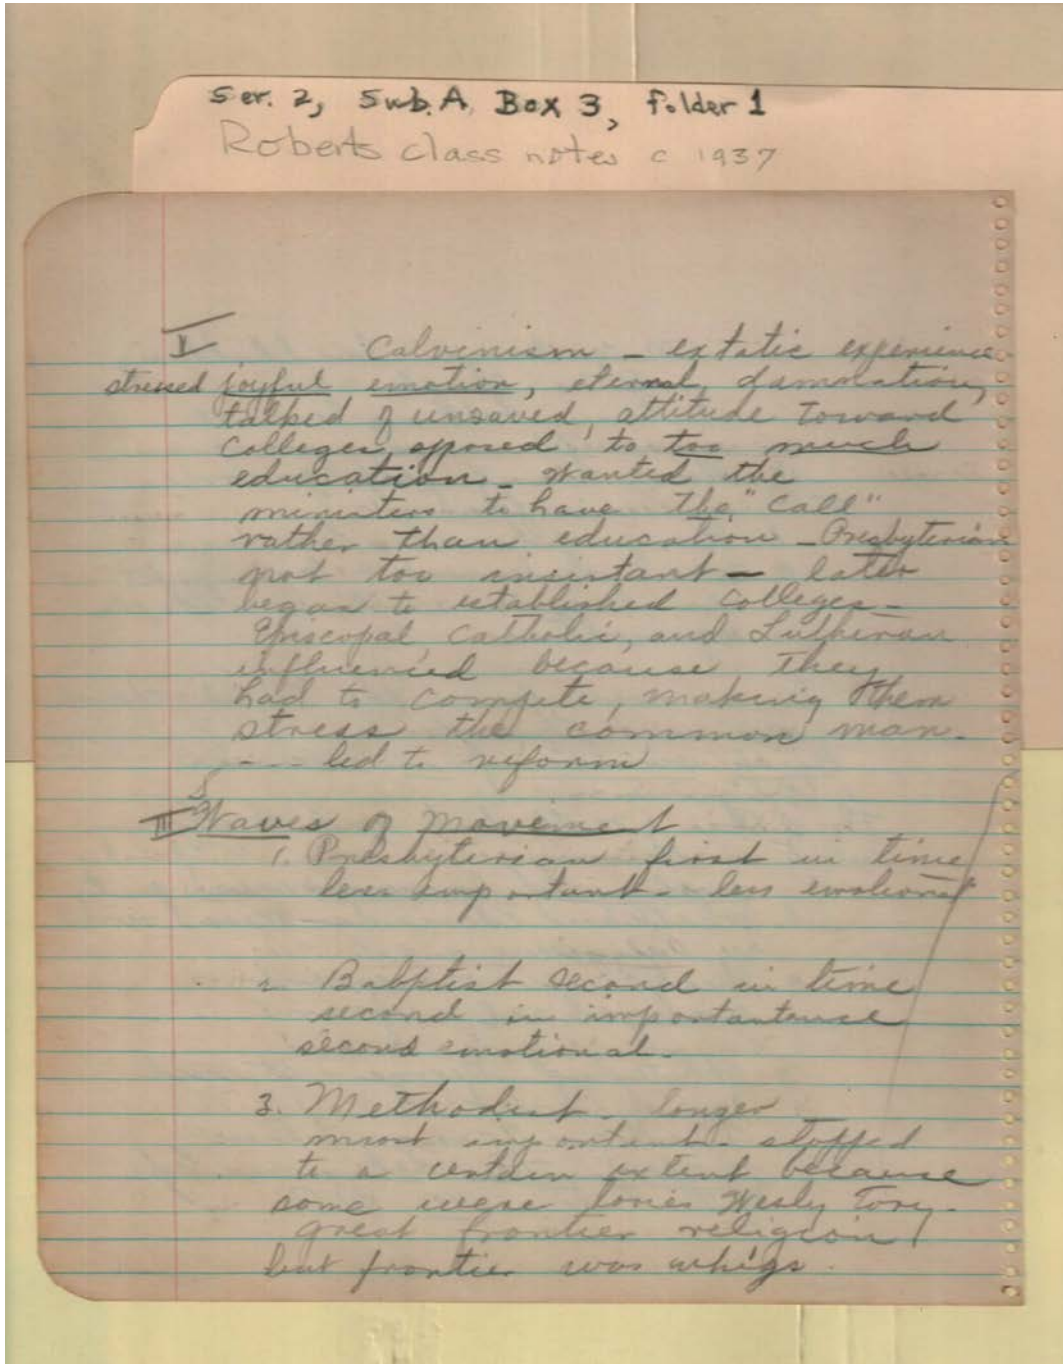 Ser. 2, Sub. A, Box 3, Folder 1
Roberts class notes c 1937
V
Calvinism - extatic experience
stressed joyful emotion, eternal, damnation,
talked of unsaved, attitude toward
colleges, opposed to too much
education - Wanted the
ministers to have the "Call"
rather than education - Presbyterian
not too insistant - later
began to established colleges -
Episcopal, Catholic, and Lutheran
influenced because They
had to compete, making them
stress the common man -
--- led to reform
III Waves of movement
1. Presbyterian first in time
less important - less emotional
2. Babptist second in time
second in importantance
second emotional.
3. Methodist - longer -
most important - stopped
to a certain extent because
some were tories Wesly Tory -
great frontier religion
but frontier was whigs.